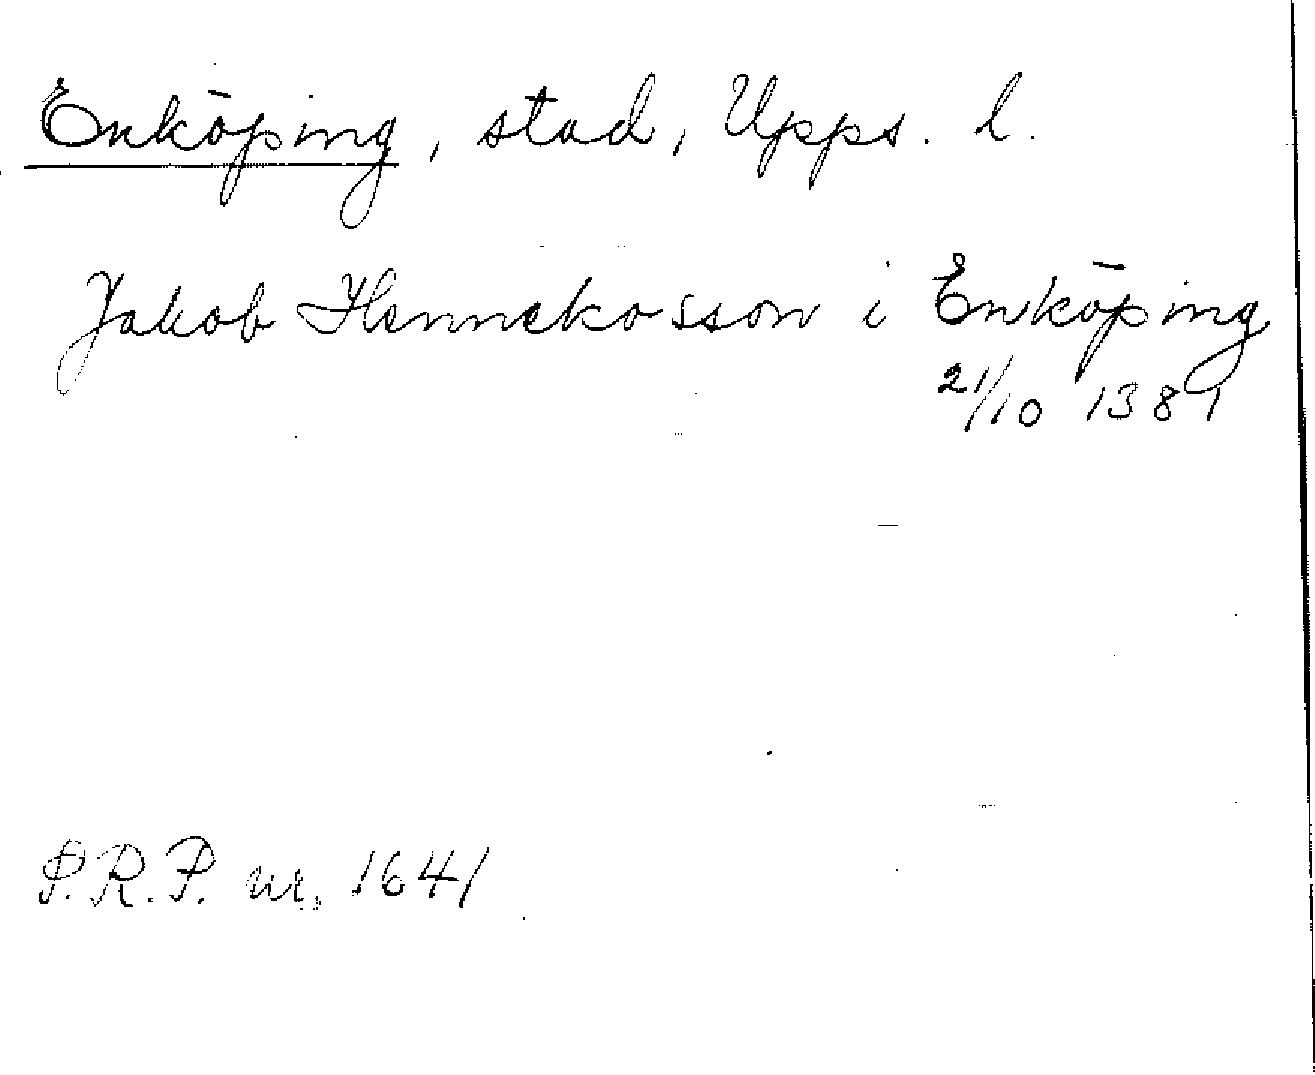 Enköping, stad, Upps. l.
Jakob Hennekosson i Enköping
21/10 1381
P.R.P. nr. 1641